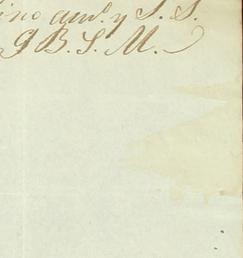 ino amº. y S. S.
Q B. S. M.